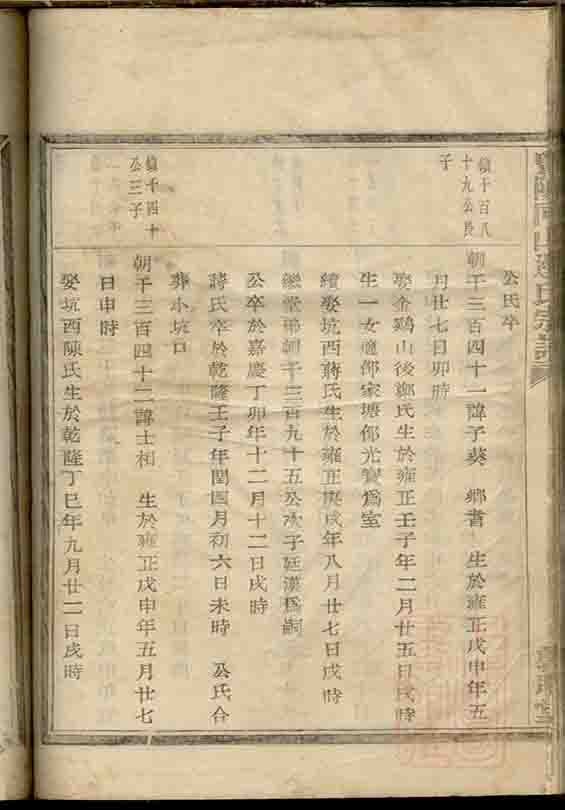 公氏卒
鎮千百八
十九公長
子
朝千三百四十一諱子葵 鄉耆 生於雍正戊申年五
月廿七日卯時
娶金鷄山後鄭氏生於雍正壬子年二月廿五日戌時
生一女適邵家塘邵光寶爲室
續娶坑西蔣氏生於雍正庚戌年八月廿七日戌時
繼堂弟朝千三百九十五公次子廷漢爲嗣
公卒於嘉慶丁卯年十二月十二日戌時
蔣氏卒於乾隆壬子年閏四月初六日未時 公氏合
葬小坑口
鎮千四十
公三子
朝千三百四十二諱士相 生於雍正戊申年五月廿七
日申時
娶坑西陳氏生於乾隆丁巳年九月廿二日戌時